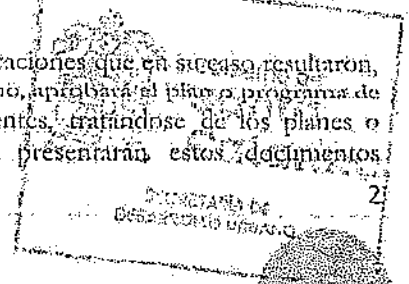 raciones que en su caso resultaron,
no, aprobará el plan o programa de
entes, tratándose de los planes o
presentarán estos documentos
2
SECRETARÍA DE
DESARROLLO URBANO